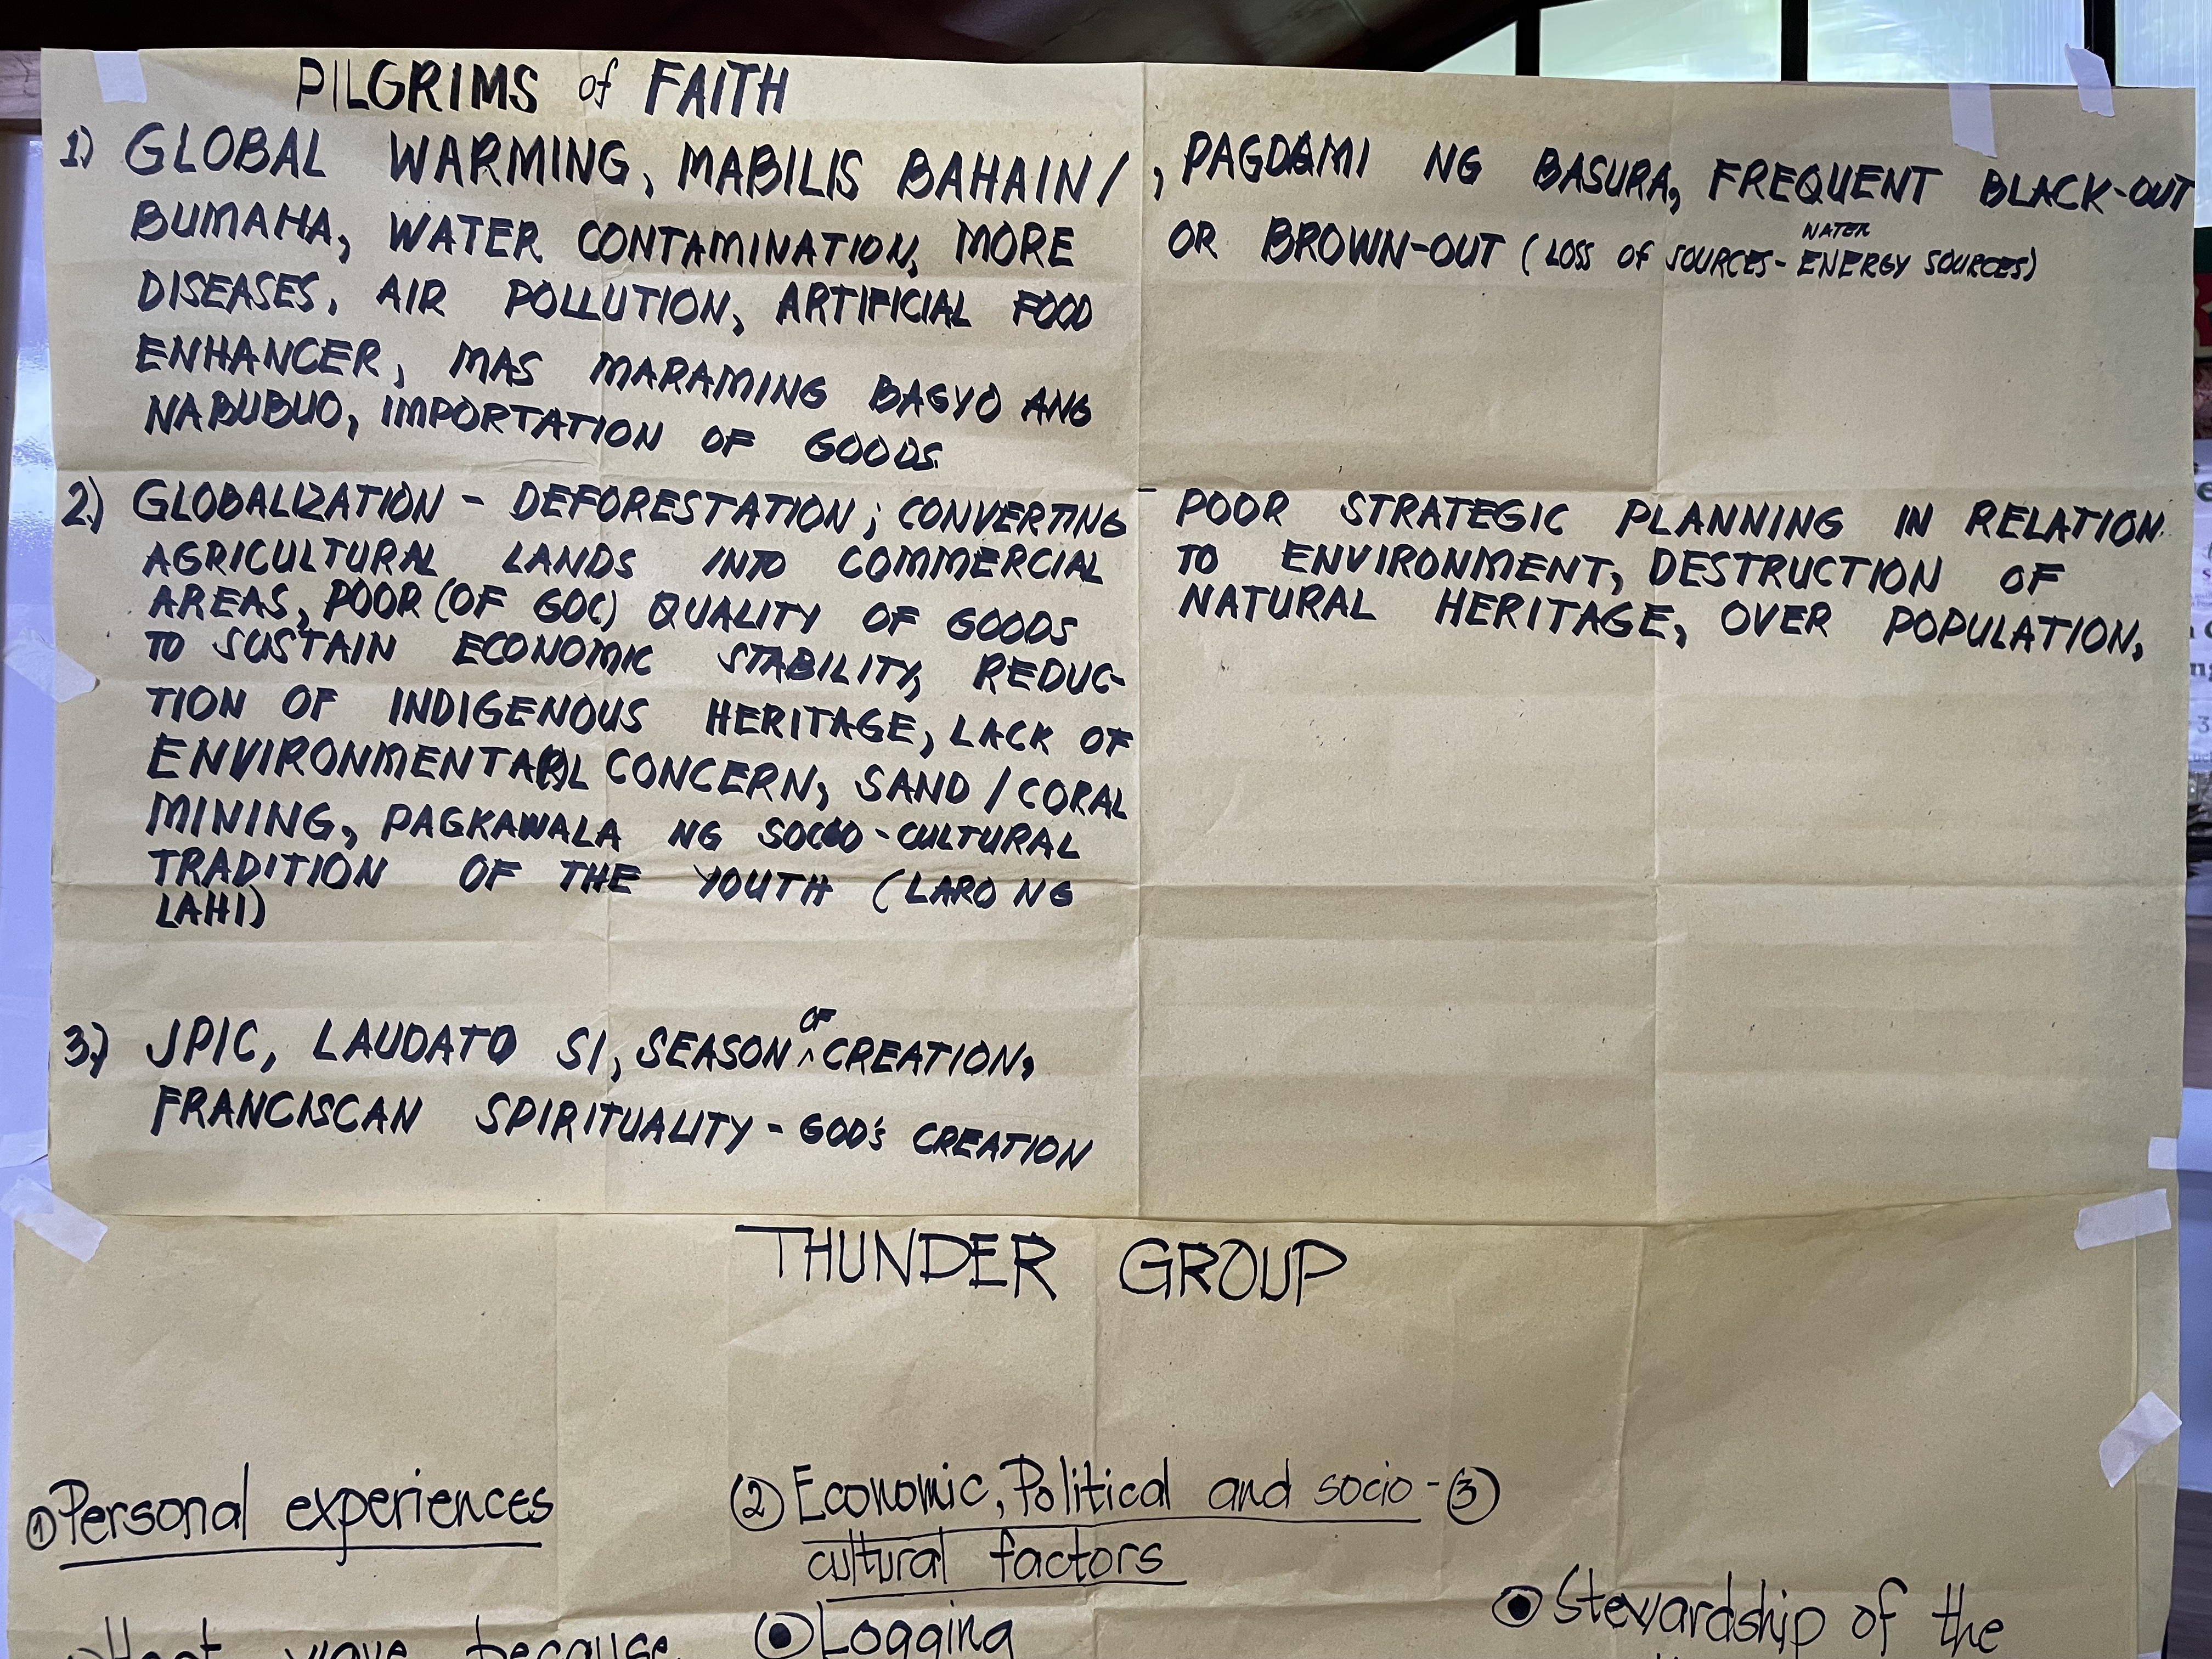 PILGRIMS of FAITH
1) GLOBAL WARMING, MABILIS BAHAIN/
BUMAHA, WATER CONTAMINATION, MORE
DISEASES, AIR POLLUTION, ARTIFICIAL FOOD
ENHANCER, MAS MARAMING BAGYO ANG
NABUBUO, IMPORTATION OF GOODS.
, PAGDAMI NG BASURA, FREQUENT BLACK-OUT
OR BROWN-OUT (LOSS OF SOURCES- WATER ENERGY SOURCES)
2.) GLOBALIZATION - DEFORESTATION; CONVERTING
AGRICULTURAL LANDS INTO COMMERCIAL
AREAS, POOR (OF GOC) QUALITY OF GOODS
TO SUSTAIN ECONOMIC STABILITY, REDUC-
TION OF INDIGENOUS HERITAGE, LACK OF
ENVIRONMENTAL CONCERN, SAND / CORAL
MINING, PAGKAWALA NG SOCIO-CULTURAL
TRADITION OF THE YOUTH (LARO NG
LAHI)
- POOR STRATEGIC PLANNING IN RELATION
TO ENVIRONMENT, DESTRUCTION OF
NATURAL HERITAGE, OVER POPULATION,
3.) JPIC, LAUDATO SI, SEASON OF CREATION,
FRANCISCAN SPIRITUALITY - GOD'S CREATION
THUNDER GROUP
① Personal experiences
Heat wave because
② Economic, Political and socio-
cultural factors
Logging
③
Stewardship of the